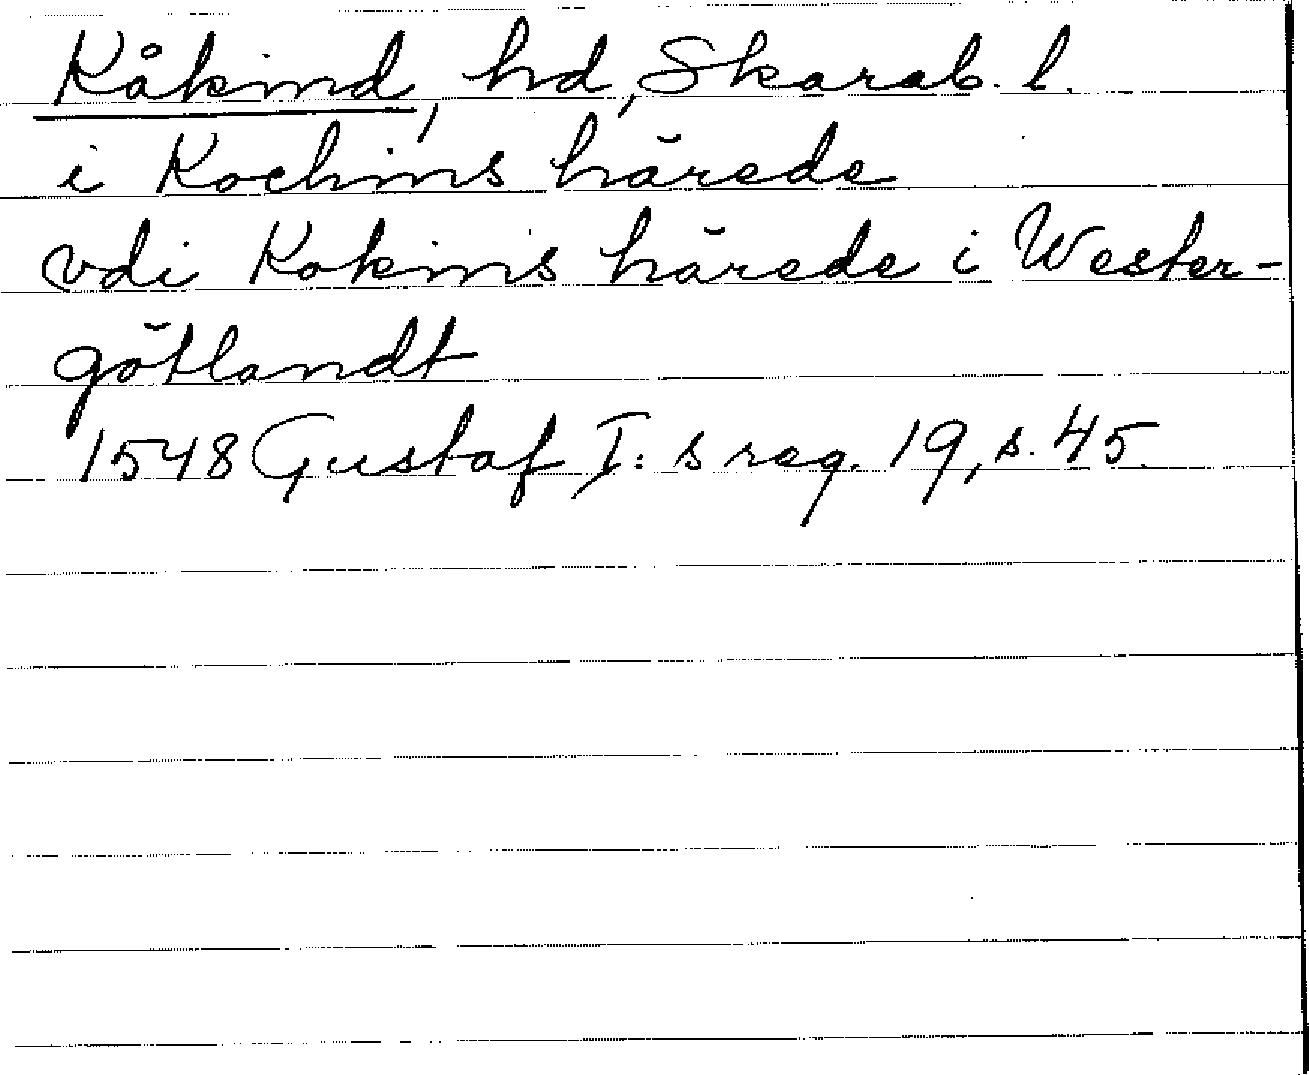 Kåkind, hd, Skarab. l.
i Kochins härede
vdi Kokins härede i Wester-
götlandt
1548 Gustaf I:s reg. 19, s. 45.